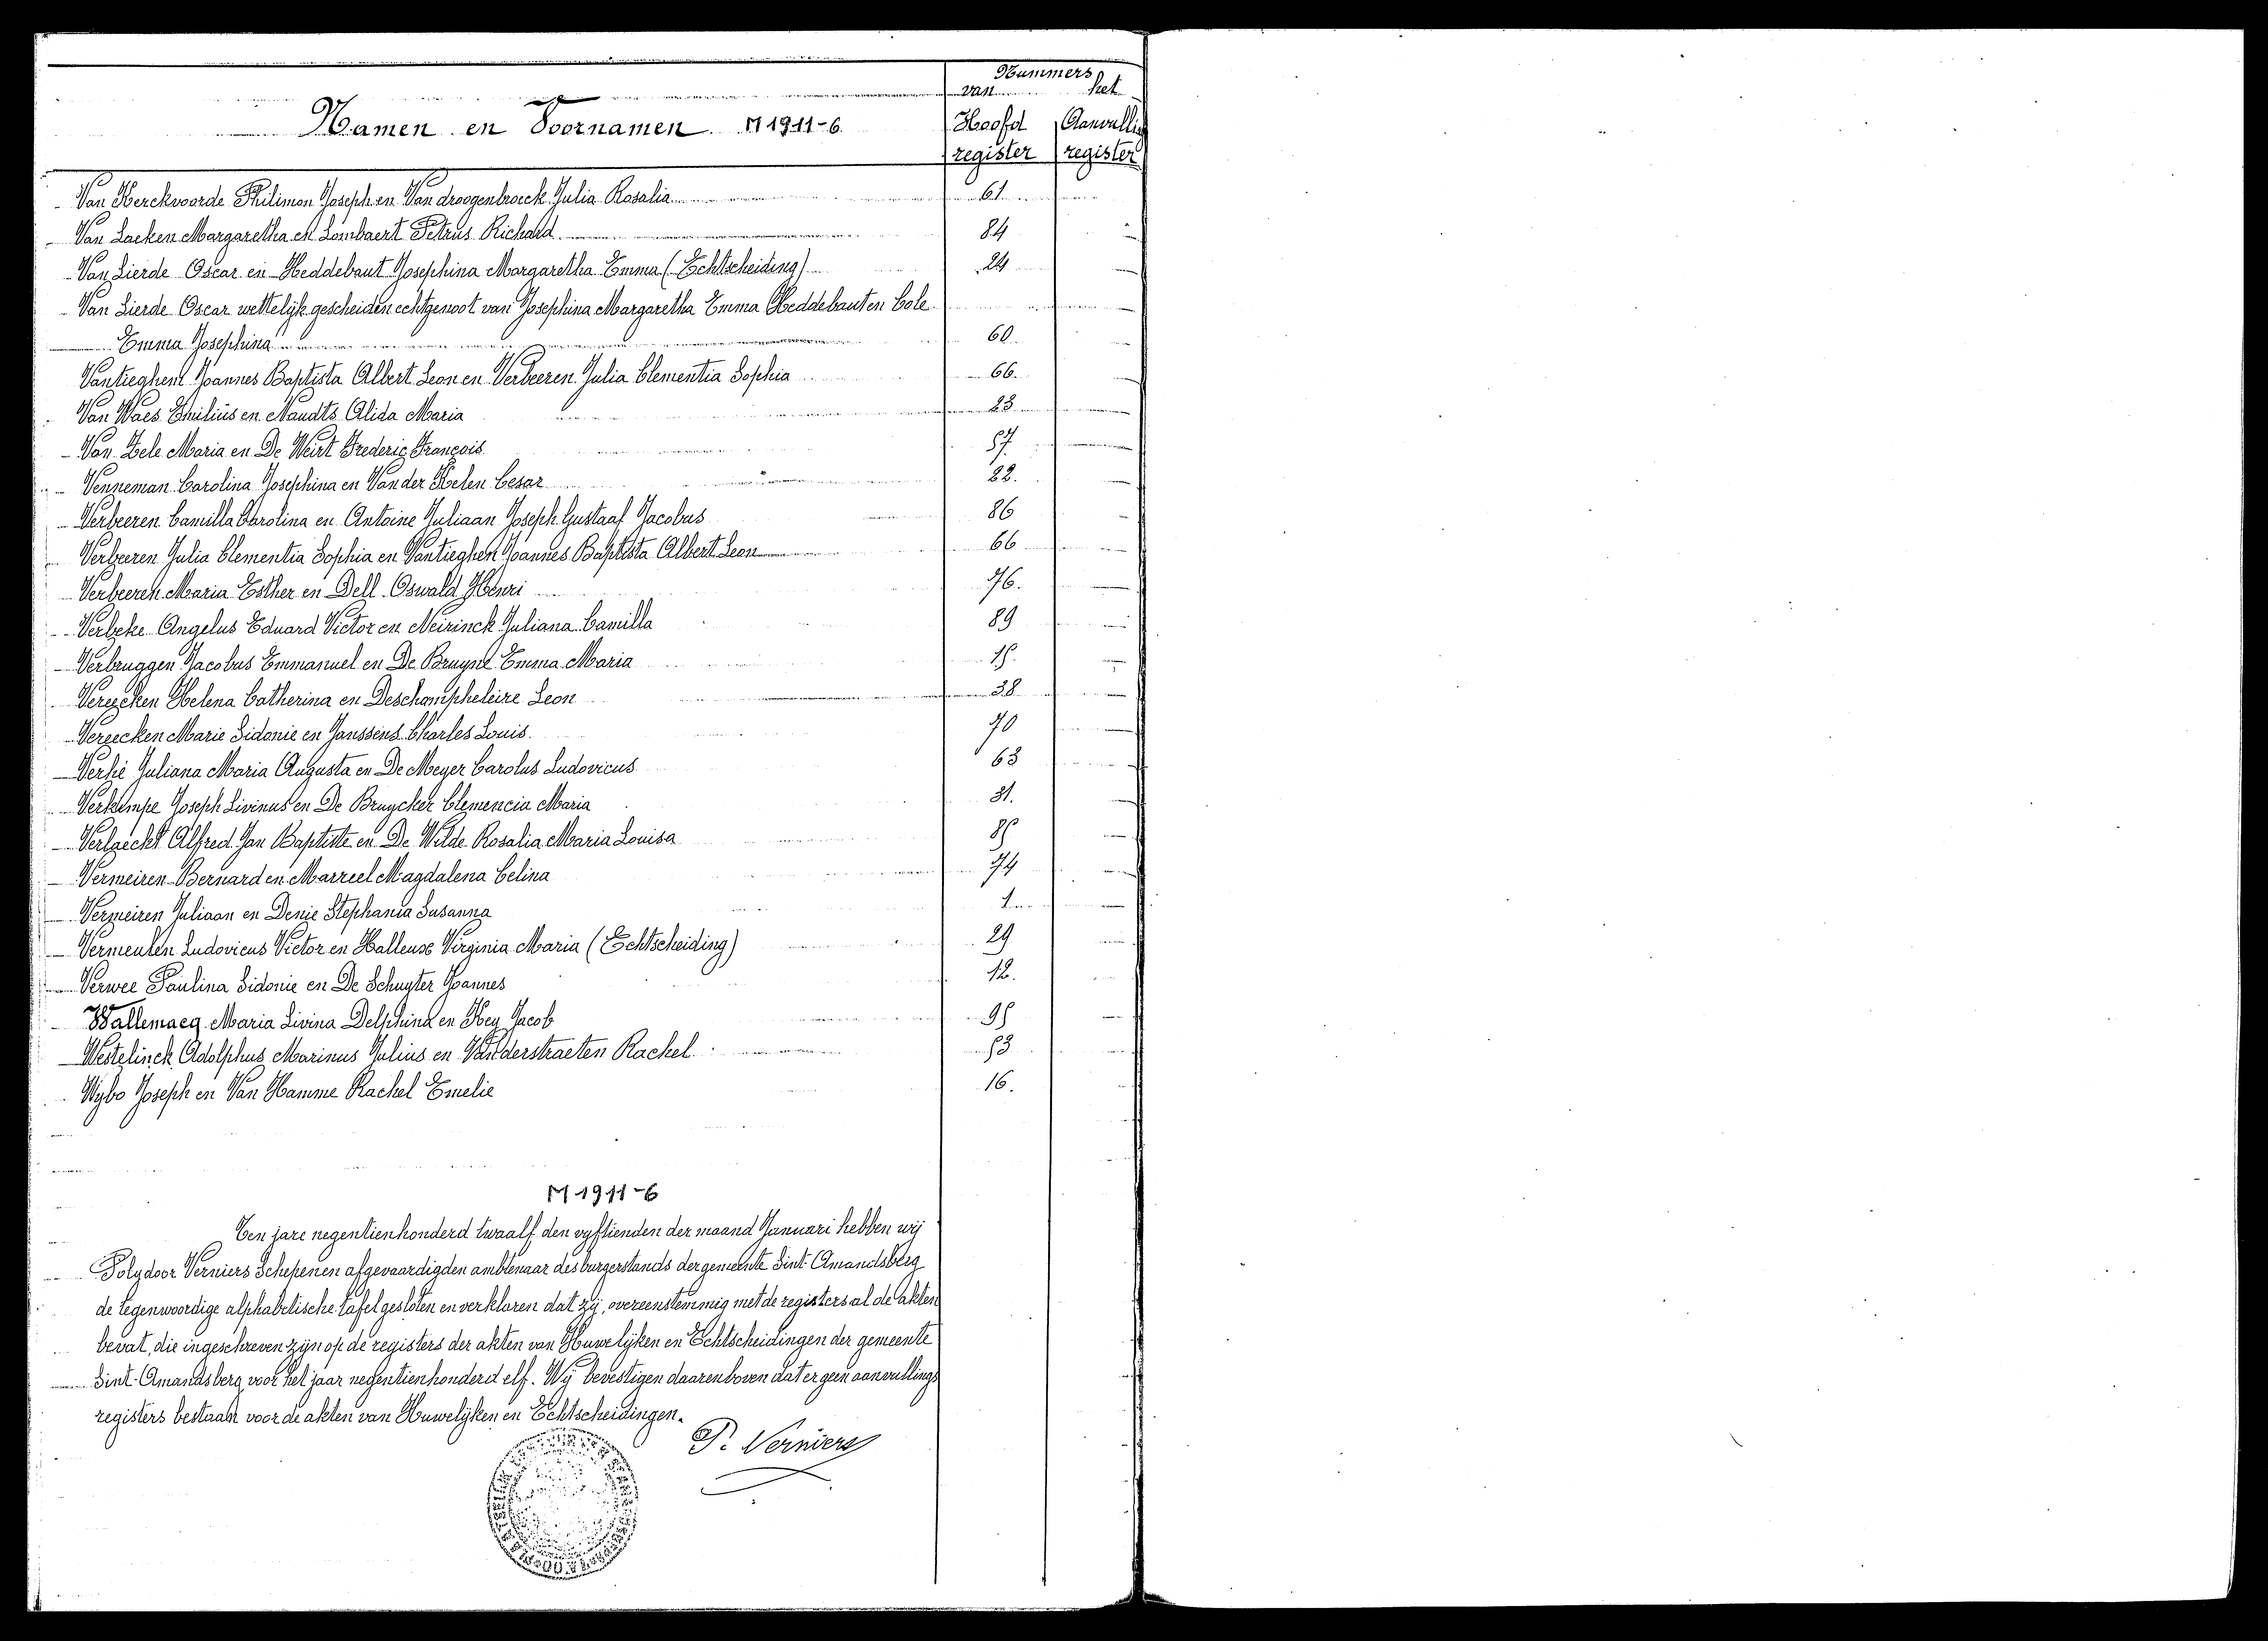 Nummers
van het
Namen en Voornamen M 1911-6
Hoofd Aanvulling
register register
Van Herckvoorde Philimon Joseph en Van droogenbroeck Julia Rosalia 61
Van Laeken Margaretha en Lombaert Petrus Richard 84
Van Lierde Oscar en Heddebaut Josephina Margaretha Emma (Echtscheiding) 24
Van Lierde Oscar wettelijk gescheiden echtgenoot van Josephina Margaretha Emma Heddebaut en Cole
Emma Josephina 60
Vantieghem Joannes Baptista Albert Leon en Verbeeren Julia Clementia Sophia 66.
Van Waes Emilius en Naudts Alida Maria 23
Van Zele Maria en De Weirt Frederic François 57.
Venneman Carolina Josephina en Van der Kelen Cesar 22.
Verbeeren Camilla Carolina en Antoine Juliaan Joseph Gustaaf Jacobus 86
Verbeeren Julia Clementia Sophia en Vantieghem Joannes Baptista Albert Leon 66
Verbeeren Maria Esther en Dell Oswald Henri 76.
Verbeke Angelus Eduard Victor en Neirinck Juliana Camilla 89
Verbruggen Jacobus Emmanuel en De Bruyne Emma Maria 15.
Vereecken Helena Catherina en Deschampheleire Leon 38
Vereecken Marie Sidonie en Janssens Charles Louis 70
Verhé Juliana Maria Augusta en De Meyer Carolus Ludovicus 63
Verkimpe Joseph Livinus en De Bruycker Clemencia Maria 31.
Verlaeckt Alfred Jan Baptiste en De Wilde Rosalia Maria Louisa 85
Vermeiren Bernard en Marreel Magdalena Celina 74
Vermeiren Juliaan en Denie Stephania Susanna 1
Vermeulen Ludovicus Victor en Halleux Virginia Maria (Echtscheiding) 29
Verwee Paulina Sidonie en De Schuyter Joannes 12.
Wallemacq Maria Livina Delphina en Hey Jacob 95
Westelinck Adolphus Marinus Julius en Vanderstraeten Rachel 53
Wybo Joseph en Van Hamme Rachel Emelie 16.
M 1911-6
Ten jare negentienhonderd twaalf den vyftienden der maand Januari hebben wij
Polydoor Verniers Schepenen afgevaardigden ambtenaar des burgerstands der gemeente Sint Amandsberg
de tegenwoordige alphabetische tafel gesloten en verklaren dat zij, overeenstemmig met de registers al de akten
bevat, die ingeschreven zijn op de registers der akten van Huwelijken en Echtscheidingen der gemeente
Sint-Amandsberg voor het jaar negentienhonderd elf. Wij bevestigen daarenboven dat er geen aanvullings
registers bestaan voor de akten van Huwelijken en Echtscheidingen.
P. Verniers